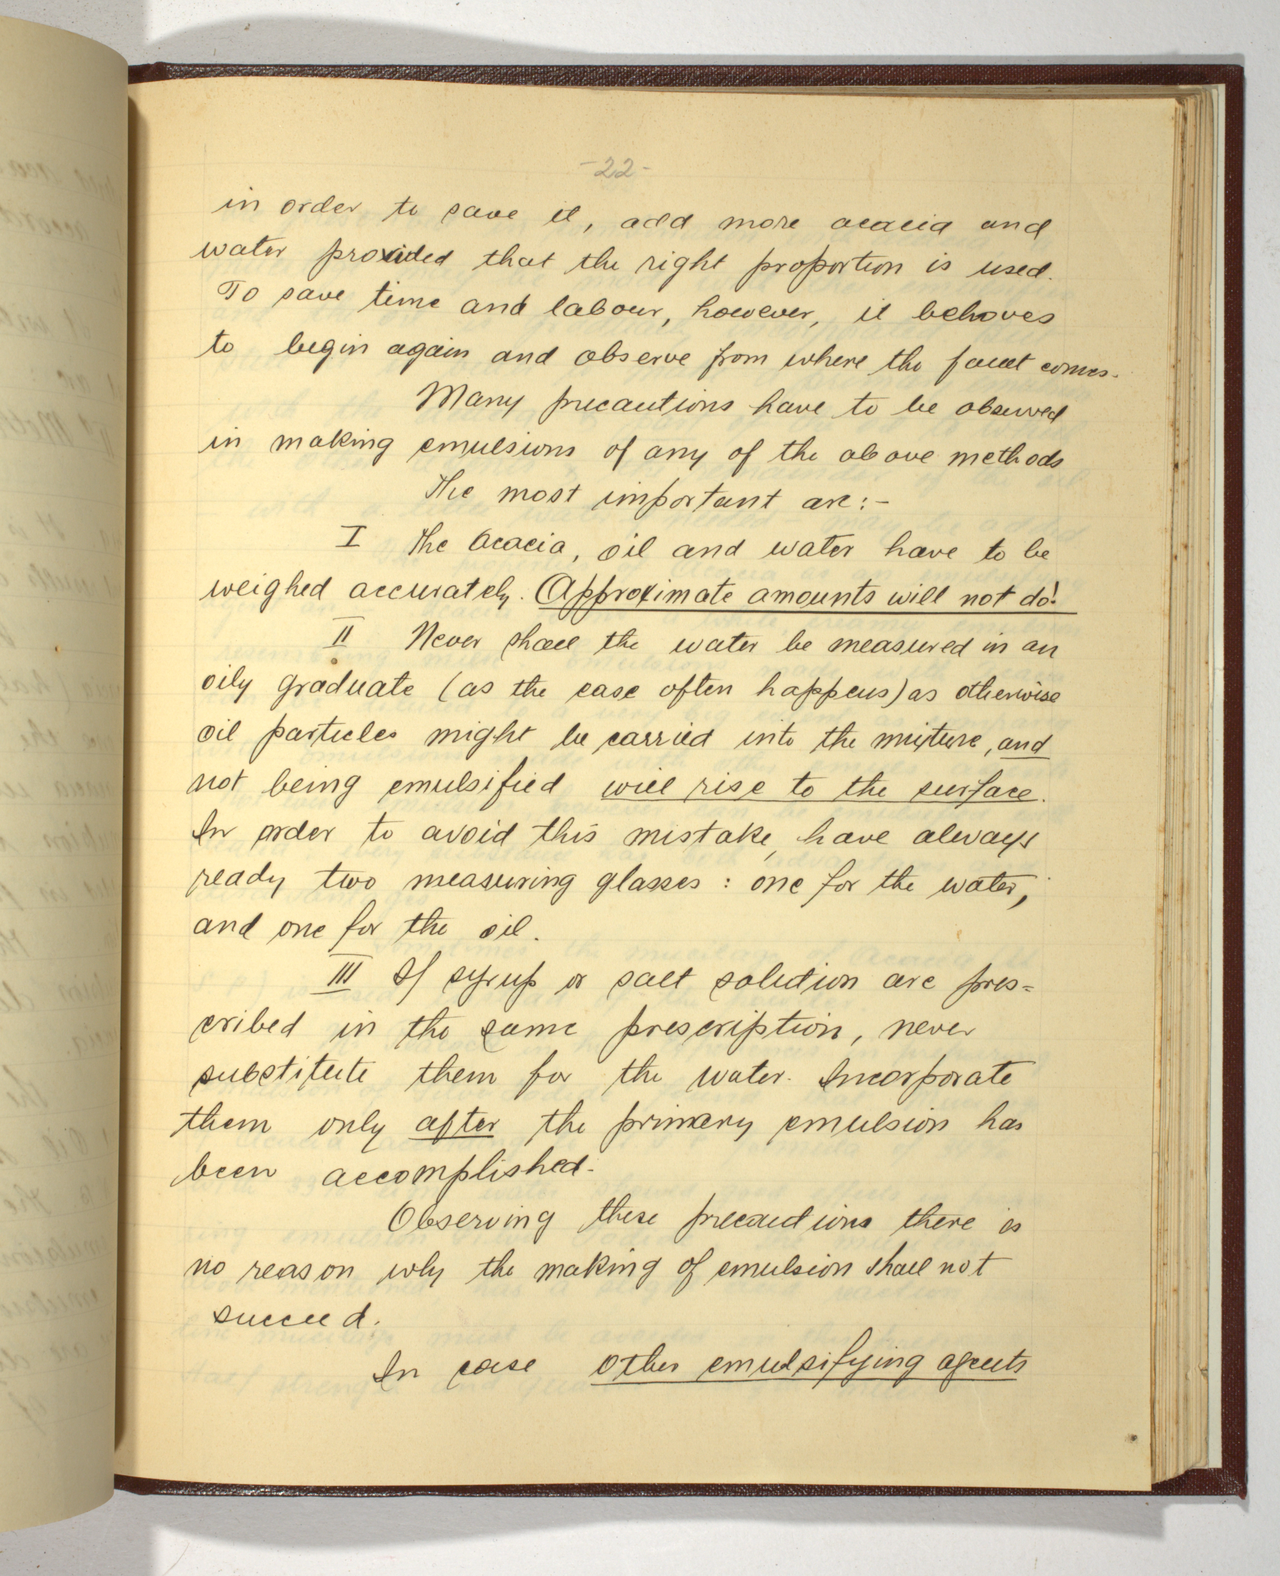 -22-
in order to save it, add more acacia and
water provided that the right proportion is used.
To save time and labour, however, it behoves
to begin again and observe from where the fault comes.
Many precautions have to be observed
in making emulsions of any of the above methods
The most important are:-
I The Acacia, oil and water have to be
weighed accurately. Approximate amounts will not do!
II Never shall the water be measured in an
oily graduate (as the case often happens) as otherwise
oil particles might be carried into the mixture, and
not being emulsified will rise to the surface.
In order to avoid this mistake, have always
ready two measuring glasses: one for the water,
and one for the oil.
III If syrup or salt solution are pres=
cribed in the same prescription, never
substitute them for the water. Incorporate
them only after the primary emulsion has
been accomplished.
Observing these precautions there is
no reason why the making of emulsion shall not
succeed.
In case other emulsifying agents